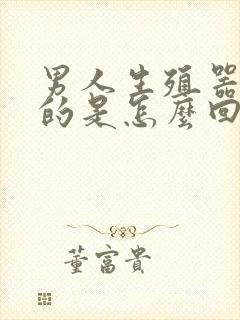 男人生殖器
的是怎麼回
董富貴